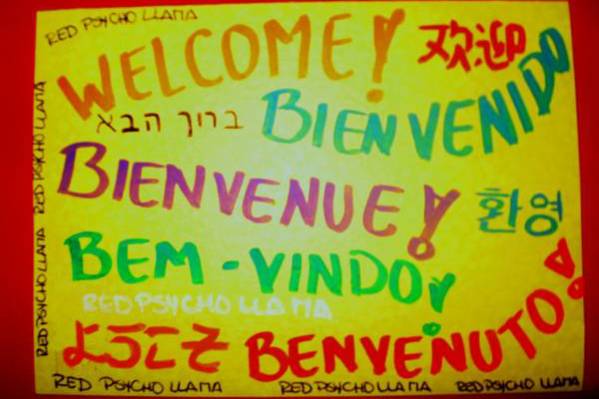 RED PSYCHO LLAMA
WELCOME!
欢迎
ברוך הבא
BIENVENIDO
RED PSYCHO LLAMA
BIENVENUE!
환영
RED PSYCHO LLAMA
BEM-VINDO!
RED PSYCHO LLAMA
ようこそ
BENVENUTO!
RED PSYCHO LLAMA
RED PSYCHO LLAMA
RED PSYCHO LLAMA